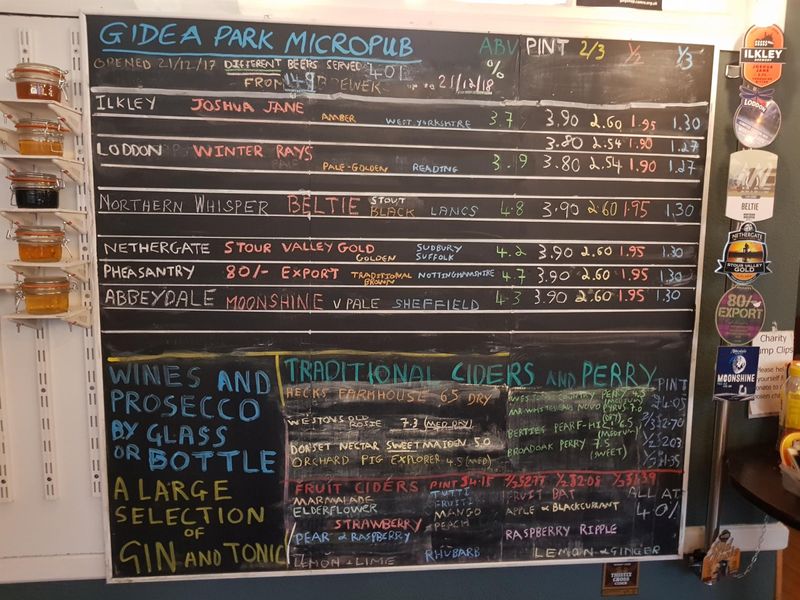 GIDEA PARK MICROPUB ABV PINT 2/3 1/2 1/3
OPENED 21/12/17 DIFFERENT BEERS SERVED 401 %
FROM 149 21/12/18
ILKLEY JOSHUA JANE AMBER WEST YORKSHIRE 3.7 3.90 2.60 1.95 1.30
3.80 2.54 1.90 1.27
LODDON WINTER RAYS PALE-GOLDEN READING 3.9 3.80 2.54 1.90 1.27
NORTHERN WHISPER BELTIE STOUT BLACK LANCS 4.8 3.90 2.60 1.95 1.30
NETHERGATE STOUR VALLEY GOLD GOLDEN SUDBURY SUFFOLK 4.2 3.90 2.60 1.95 1.30
PHEASANTRY 80/- EXPORT TRADITIONAL BROWN NOTTINGHAMSHIRE 4.7 3.90 2.60 1.95 1.30
ABBEYDALE MOONSHINE V PALE SHEFFIELD 4.3 3.90 2.60 1.95 1.30
WINES AND
PROSECCO
BY GLASS
OR BOTTLE
A LARGE
SELECTION
OF
GIN AND TONIC
TRADITIONAL CIDERS AND PERRY
HECKS FARMHOUSE 6.5 DRY
WESTONS OLD ROSIE 7.3 (MED DRY)
DORSET NECTAR SWEET MAIDEN 5.0
ORCHARD PIG EXPLORER 4.5 (MED)
COUNTRY PERRY 4.5
(MEDIUM)
BROADOAK PERRY 7.5
(SWEET)
PINT
£4.05
2/3 £2.70
1/2 £2.03
1/3 £1.35
FRUIT CIDERS PINT £4.15 2/3 £2.77 1/2 £2.08 1/3 £1.39
MARMALADE TUTTI FRUTTI FRUIT BAT ALL AT
ELDERFLOWER MANGO APPLE & BLACKCURRANT 4.0%
STRAWBERRY PEACH
PEAR & RASPBERRY RASPBERRY RIPPLE
LEMON & LIME RHUBARB LEMON & GINGER
ILKLEY
JOSHUA
JANE
LODDON
BELTIE
NETHERGATE
STOUR VALLEY
GOLD
80/-
EXPORT
MOONSHINE
Charity
THISTLY
CROSS